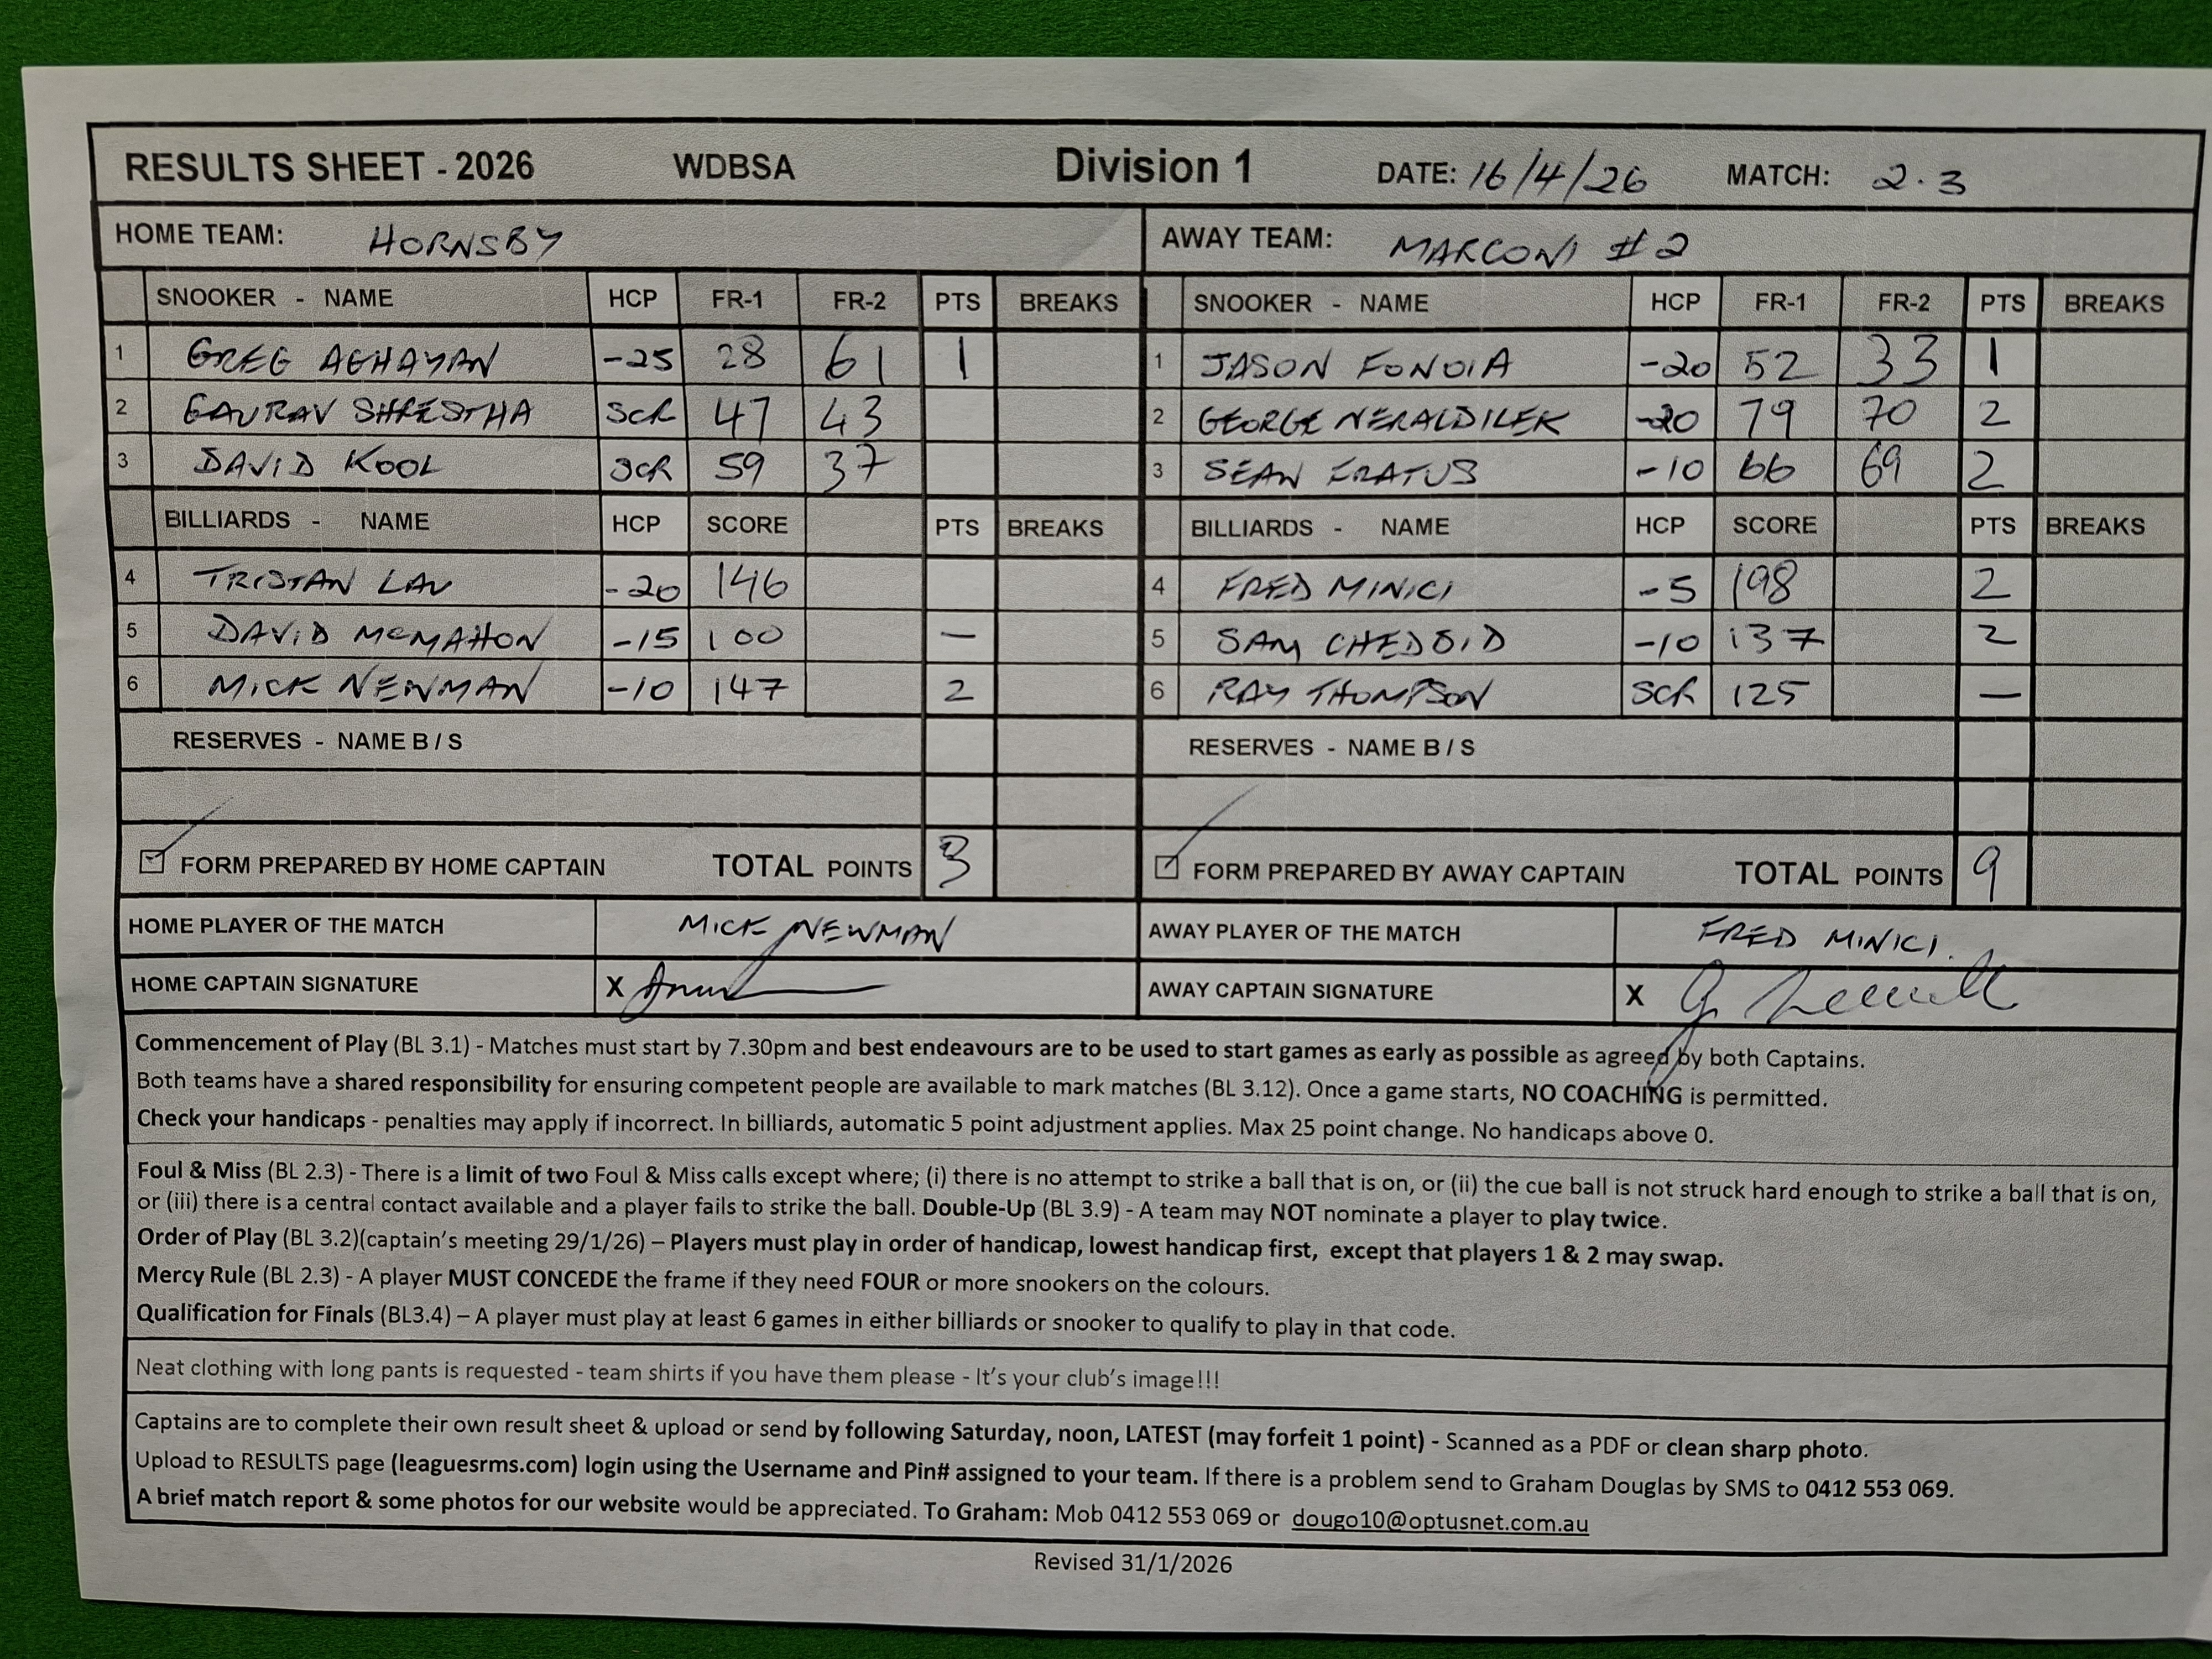 RESULTS SHEET - 2026 WDBSA Division 1 DATE: 16/4/26 MATCH: 2.3
HOME TEAM: HORNSBY AWAY TEAM: MARCONI #2
SNOOKER - NAME HCP FR-1 FR-2 PTS BREAKS SNOOKER - NAME HCP FR-1 FR-2 PTS BREAKS
1 GREG AGHAYAN -25 28 61 1 1 JASON FONOIA -20 52 33 1
2 GAURAV SHRESTHA SCR 47 43 2 GEORGE NERALDILEK -20 79 70 2
3 DAVID KOOL SCR 59 37 3 SEAN FRATUS -10 66 69 2
BILLIARDS - NAME HCP SCORE PTS BREAKS BILLIARDS - NAME HCP SCORE PTS BREAKS
4 TRISTAN LAU -20 146 4 FRED MINICI -5 198 2
5 DAVID McMAHON -15 100 — 5 SAM CHEDOID -10 137 2
6 MICK NEWMAN -10 147 2 6 RAY THOMPSON SCR 125 —
RESERVES - NAME B / S RESERVES - NAME B / S
FORM PREPARED BY HOME CAPTAIN TOTAL POINTS 3 FORM PREPARED BY AWAY CAPTAIN TOTAL POINTS 9
HOME PLAYER OF THE MATCH MICK NEWMAN AWAY PLAYER OF THE MATCH FRED MINICI.
HOME CAPTAIN SIGNATURE X AWAY CAPTAIN SIGNATURE X
Commencement of Play (BL 3.1) - Matches must start by 7.30pm and best endeavours are to be used to start games as early as possible as agreed by both Captains.
Both teams have a shared responsibility for ensuring competent people are available to mark matches (BL 3.12). Once a game starts, NO COACHING is permitted.
Check your handicaps - penalties may apply if incorrect. In billiards, automatic 5 point adjustment applies. Max 25 point change. No handicaps above 0.
Foul & Miss (BL 2.3) - There is a limit of two Foul & Miss calls except where; (i) there is no attempt to strike a ball that is on, or (ii) the cue ball is not struck hard enough to strike a ball that is on,
or (iii) there is a central contact available and a player fails to strike the ball. Double-Up (BL 3.9) - A team may NOT nominate a player to play twice.
Order of Play (BL 3.2)(captain's meeting 29/1/26) – Players must play in order of handicap, lowest handicap first, except that players 1 & 2 may swap.
Mercy Rule (BL 2.3) - A player MUST CONCEDE the frame if they need FOUR or more snookers on the colours.
Qualification for Finals (BL3.4) – A player must play at least 6 games in either billiards or snooker to qualify to play in that code.
Neat clothing with long pants is requested - team shirts if you have them please - It's your club's image!!!
Captains are to complete their own result sheet & upload or send by following Saturday, noon, LATEST (may forfeit 1 point) - Scanned as a PDF or clean sharp photo.
Upload to RESULTS page (leaguesrms.com) login using the Username and Pin# assigned to your team. If there is a problem send to Graham Douglas by SMS to 0412 553 069.
A brief match report & some photos for our website would be appreciated. To Graham: Mob 0412 553 069 or dougo10@optusnet.com.au
Revised 31/1/2026